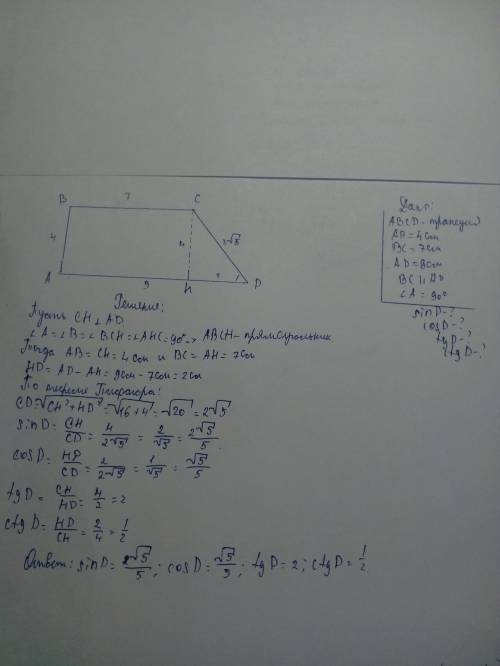 B 7 C
4 4 2√5
A 9 H 2 D
Дано:
ABCD - трапеция
AB = 4см
BC = 7см
AD = 9см
BC || AD
∠A = 90°
sinD - ?
cosD - ?
tgD - ?
ctgD - ?
Решение:
Пусть CH⊥AD,
∠A = ∠B = ∠BCH = ∠AHC = 90° → ABCH - прямоугольник.
Тогда AB = CH = 4 см и BC = AH = 7см
HD = AD - AH = 9см - 7см = 2см
По теореме Пифагора:
CD = √CH² + HD² = √16 + 4 = √20 = 2√5
sinD = CH/CD = 4/2√5 = 2/√5 = 2√5/5.
cosD = HD/CD = 2/2√5 = 1/√5 = √5/5
tgD = CH/HD = 4/2 = 2
ctgD = HD/CH = 2/4 = 1/2
Ответ: sinD = 2√5/5; cosD = √5/5; tgD = 2; ctgD = 1/2.